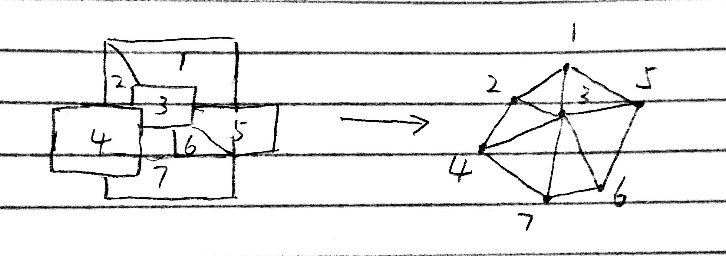 1
2
3
4
5
6
7
1
2
3
5
4
6
7